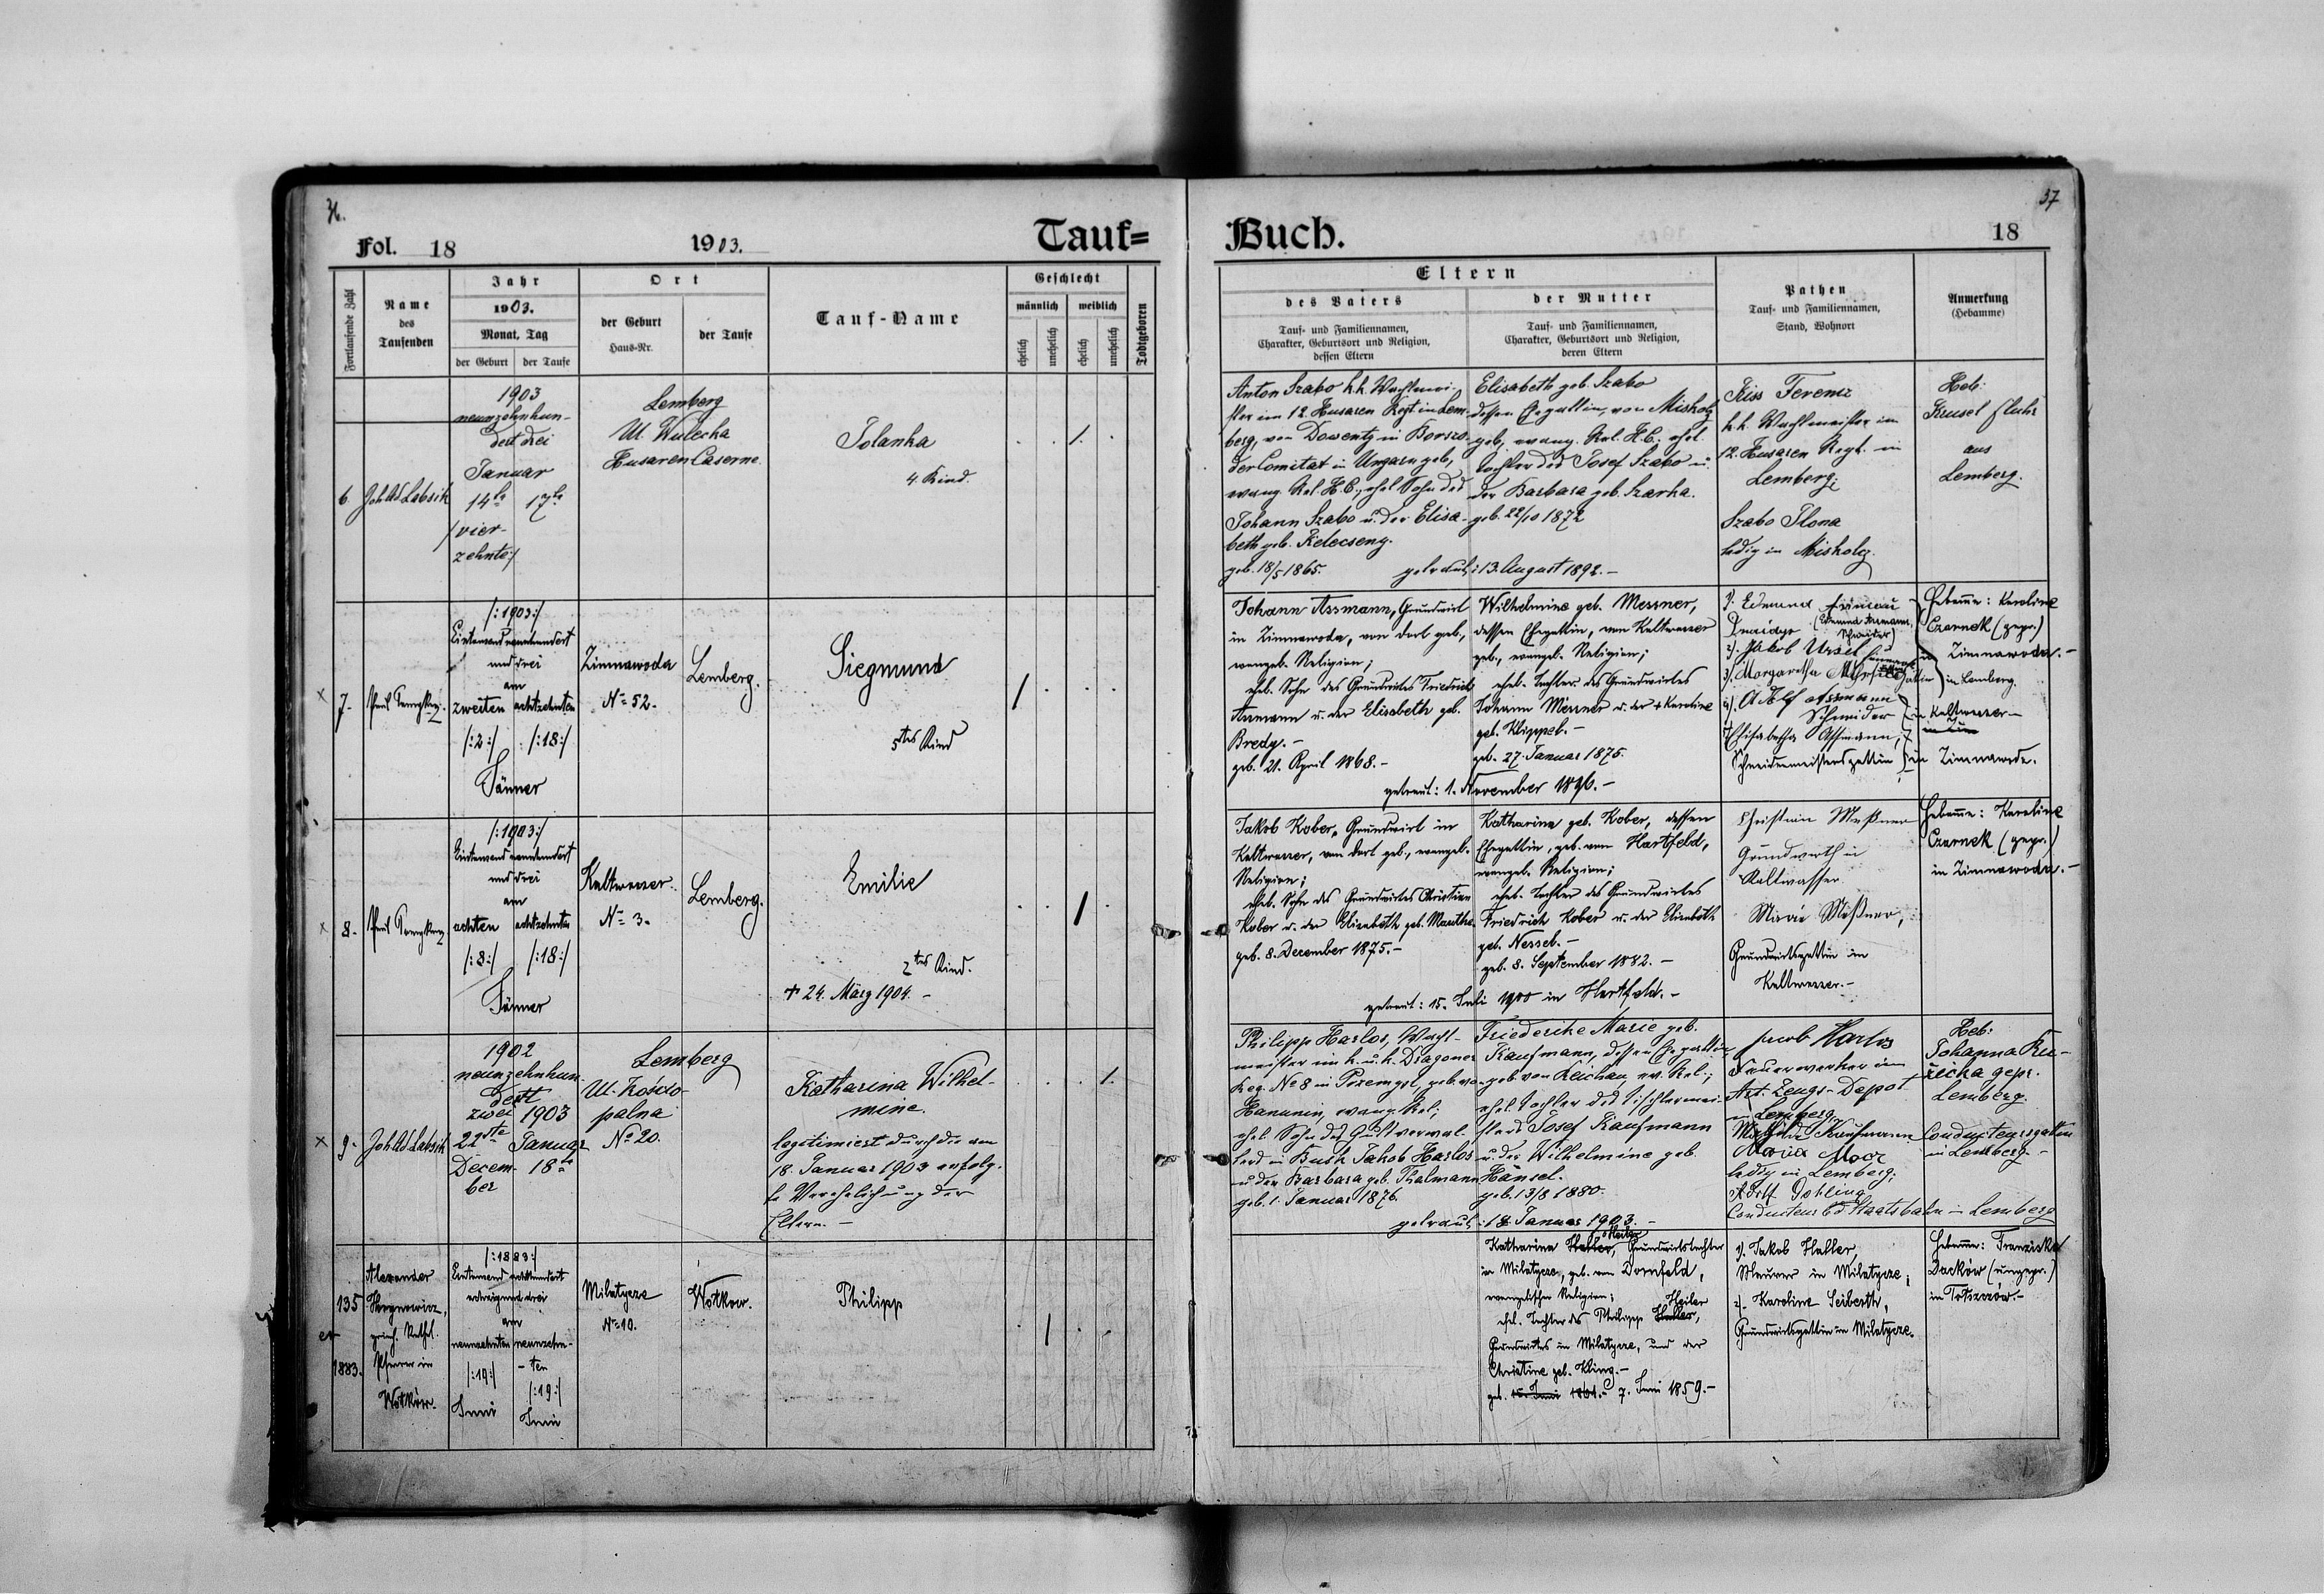 36.
Fol. 18
1903.
Tauf=
Fortlaufende Zahl
Name
des
Taufenden
Jahr
1903.
Monat, Tag
der Geburt
der Taufe
Ort
der Geburt
Haus-Nr.
der Taufe
Tauf-Name
Geschlecht
männlich
weiblich
ehelich
unehelich
ehelich
unehelich
Todtgeboren
6
1903
neunzehnhun-
dert drei
Januar
14te 17te
/vier-
zehnte/
Lemberg
Ul. Wulecka
Husaren Caserne
Jolanka
4. Kind.
7.
/:1903:/
Eintausendneunhundert
und drei
am
zweiten achtzehnten
/:2:/ /:18:/
Jänner
Zimnawoda
No 52.
Lemberg.
Siegmund
5tes Kind
8.
/:1903:/
Eintausendneunhundert
und drei
am
achten achtzehnten
/:8:/ /:18:/
Jänner
Kaltwasser
No 3.
Lemberg.
Emilie
2tes Kind.
+ 24. März 1904. -
9.
1902
neunzehnhun-
dert
zwei 1903
22ste Januar
Decem- 18te
ber
Lemberg
Ul.
palna
No 20.
Katharina Wilhel-
mine.
legitimiert durch die am
18. Januar 1903 erfolg-
te Verehelichung der
Eltern. -
135
ex
1883.
Alexander
griech. kathol.
Pfarrer in
Wołków.
/:1883:/
Eintausend achthundert
achtzig und drei
am
neunzehnten neunzehn-
- ten
/:19:/ /:19:/
Juni Juni
Milatycze
No 10.
Wołkow.
Philipp
37
Buch.
18
Eltern
des Vaters
Tauf- und Familiennamen,
Charakter, Geburtsort und Religion,
dessen Eltern
der Mutter
Tauf- und Familiennamen,
Charakter, Geburtsort und Religion,
deren Eltern
Pathen
Tauf- und Familiennamen,
Stand, Wohnort
Anmerkung
(Hebamme)
Anton Szabo k.k. Wachtmei-
ster im 12. Husaren Regt in Lem-
berg, von in
der Comitat in Ungarn geb,
evang. Rel. H.C., ehel. Sohn des
Johann Szabo u. der Elisa-
beth geb.
geb. 18/5 1865.
Elisabeth geb. Szabo
dessen Ehegattin, von Miskolz
geb, evang. Rel. H.C., ehel.
Tochter des Josef Szabo u.
der Barbara geb. Szarka.
geb. 22/10 1872
getraut: 13. August 1892. -
Kiss Ferencz
k.k. Wachtmeister im
12. Husaren Regt. in
Lemberg;
Szabo Ilona
ledig in Miskolz.
Heb:
aus
Lemberg.
Johann Assmann, Grundwirt
in Zimnawoda, von dort geb.,
evangel. Religion;
ehel. Sohn des Grundwirtes Friedrich
Assmann u. der Elisabeth geb.
Bredy. -
geb. 21. April 1868. -
Wilhelmine geb. Messner,
dessen Ehegattin, von Kaltwasser
geb., evangel. Religion;
ehel. Tochter des Grundwirtes
Johann Messner u. der + Karoline
geb. Klippel. -
geb. 27. Januar 1875.
getraut: 1. November 1896. -
1). Edmund
(Edmund Assmann,
Schneider)
2). Jakob
3). Margaretha
Gattin
in Lemberg.
4). Adolf Assmann
Schneider
in Kaltwasser -
Elisabetha Assmann,
Schneidermeistersgattin in Zimnawoda.
Hebamme: Karoline
Czarnek (gepr.)
in Zimnawoda. -
Jakob Kober, Grundwirt in
Kaltwasser, von dort geb., evangel.
Religion;
ehel. Sohn des Grundwirtes Christian
Kober u. der Elisabeth geb.
geb. 8. December 1875. -
Katharina geb. Kober, dessen
Ehegattin, geb. von Hartfeld,
evangel. Religion;
ehel. Tochter des Grundwirtes
Friedrich Kober u. der Elisabeth
geb. Nessel. -
geb. 8. September 1882. -
getraut: 15. Juli 1900 in Hartfeld. -
Christian Meßner
Grundwirth in
Kaltwasser
Marie Meßner,
Grundwirtsgattin in
Kaltwasser. -
Hebamme: Karoline
Czarnek (gepr.)
in Zimnawoda. -
Philipp Harlos, Wacht-
meister im k. u. k. Dragoner
Reg. No 8 in Przemysl, geb. von
Hanunin, evang. Rel;
ehel. Sohn des Gutsverwal-
ters in Busk Jakob Harlos
u. der Barbara geb. Thalmann
geb. 1. Januar 1876.
Friederike Marie geb.
Kaufmann, dessen Ehegattin,
geb. von Reichau, ev. Rel.;
ehel. Tochter des Tischlermei-
sters Josef Kaufmann
u. der Wilhelmine geb.
Hänsel.
geb. 13/8 1880.
getraut: 18. Januar 1903. -
Jacob Harlos
Feuerwerker im
Art. Zeugs-Depot
in Lemberg,
Mathilde Kaufmann Conducteursgattin
in Lemberg -
Maria Moor
ledig in Lemberg;
Adolf Dohling
Conducteur d Staatsbahn in Lemberg
Heb:
Johanna Ru-
zicka gepr.
Lemberg.
Heiler
Katharina Haller, Grundwirtstochter
in Milatycze, geb. von Dornfeld,
evangelischer Religion;
Heiler
ehel. Tochter des Philipp Haller,
Grundwirtes in Milatycze, und der
Christine geb. Kling. -
geb. 7. Juni 1859. -
1). Jakob Haller,
Maurer in Milatycze;
2). Karoline Seiberth,
Grundwirtsgattin in Milatycze.
Hebamme: Franziska
Dacków (ungepr.)
in Tołszczów. -